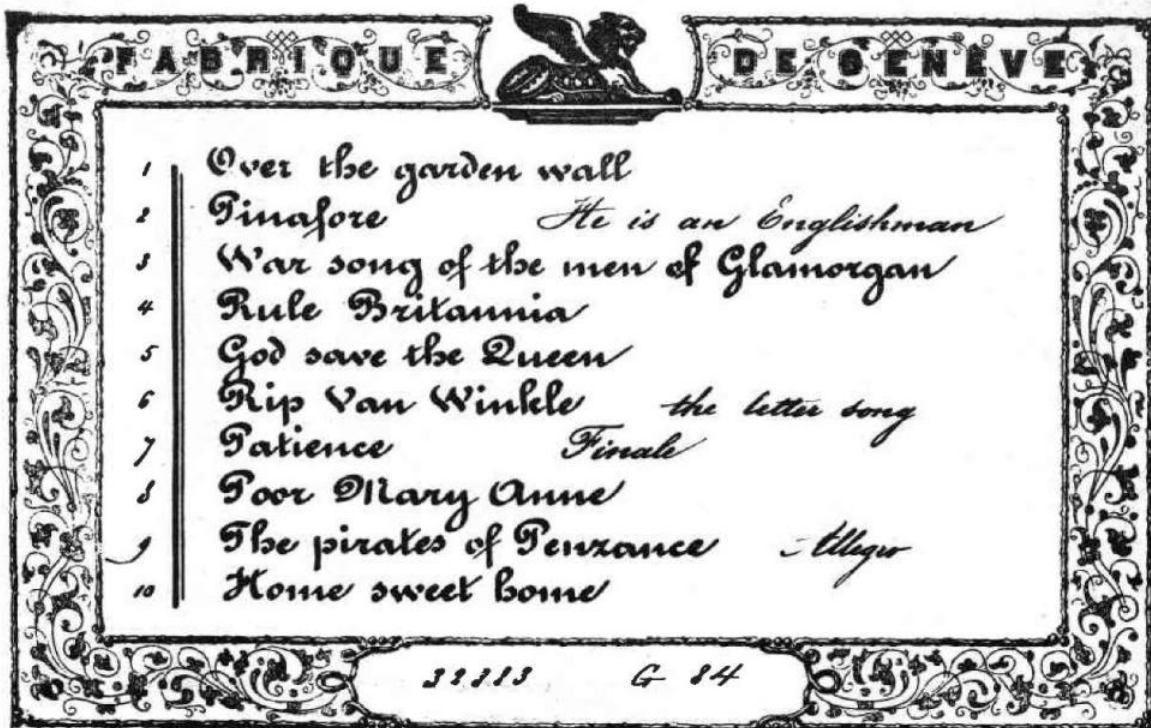 FABRIQUE DE GENÈVE
1 Over the garden wall
2 Pinafore He is an Englishman
3 War song of the men of Glamorgan
4 Rule Britannia
5 God save the Queen
6 Rip Van Winkle the letter song
7 Patience Finale
8 Poor Mary Anne
9 The pirates of Penzance Allegro
10 Home sweet home
32383 G 84